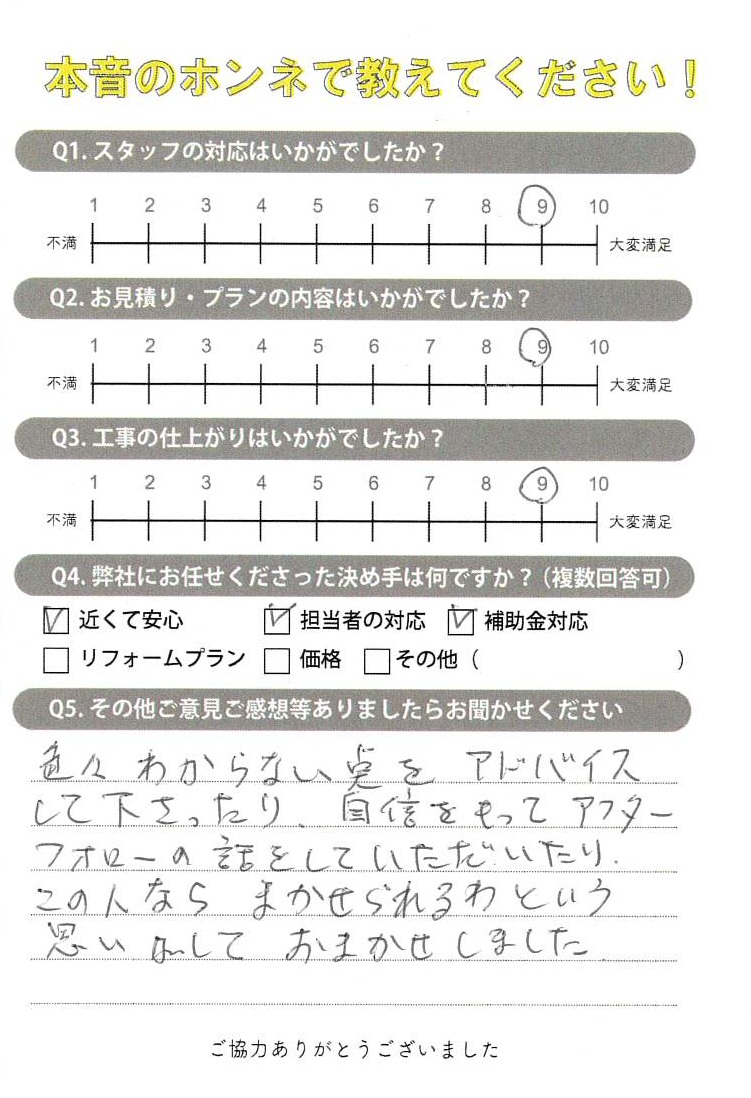 本音のホンネで教えてください！
Q1. スタッフの対応はいかがでしたか？
1 2 3 4 5 6 7 8 9 10
不満 大変満足
Q2. お見積り・プランの内容はいかがでしたか？
1 2 3 4 5 6 7 8 9 10
不満 大変満足
Q3. 工事の仕上がりはいかがでしたか？
1 2 3 4 5 6 7 8 9 10
不満 大変満足
Q4. 弊社にお任せくださった決め手は何ですか？（複数回答可）
近くて安心 担当者の対応 補助金対応
リフォームプラン 価格 その他（ ）
Q5. その他ご意見ご感想等ありましたらお聞かせください
色々わからない点を アドバイス
して下さったり、自信をもって アフター
フォローの話をしていただいたり、
この人なら まかせられるわ という
思い して おまかせ しました
ご協力ありがとうございました